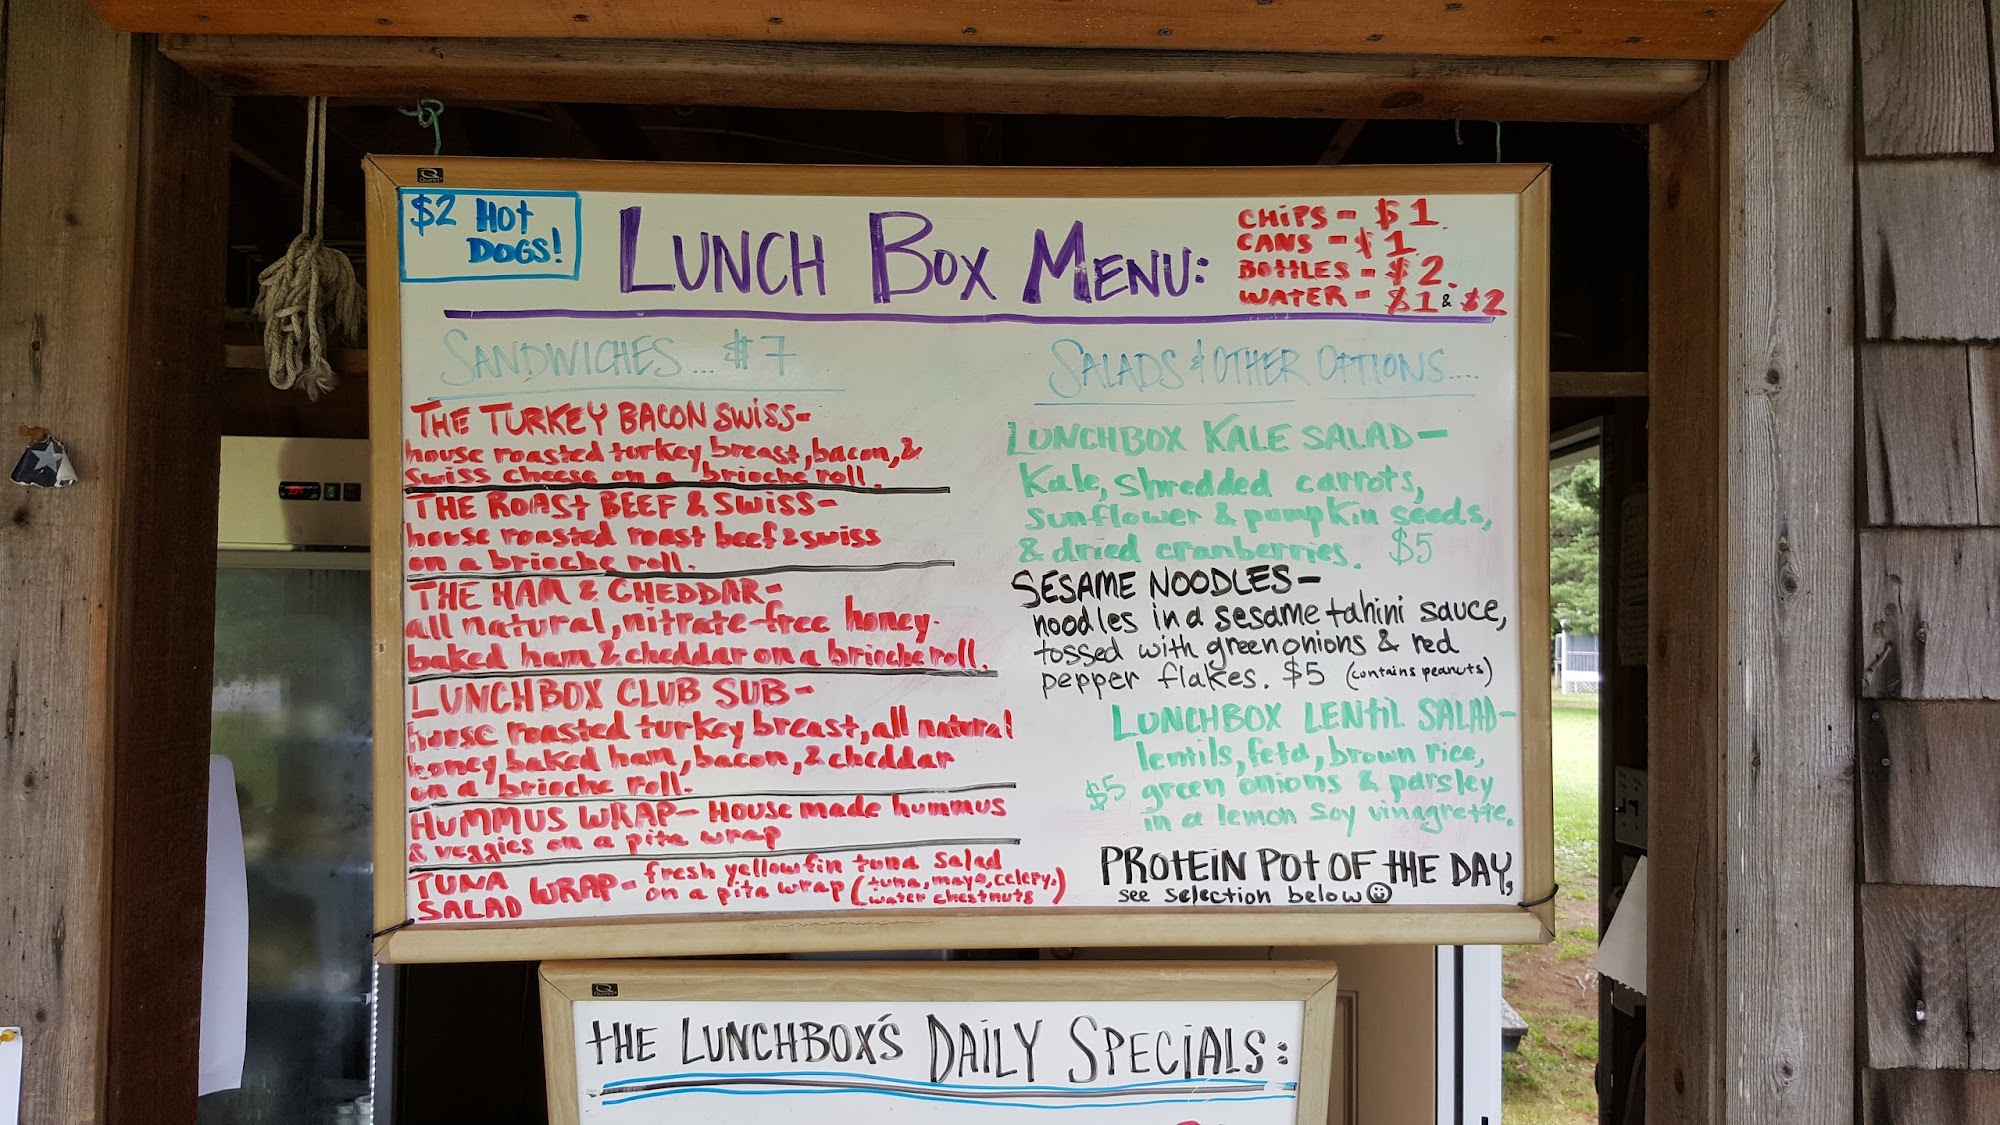 $2 HOT
DOGS!
LUNCH BOX MENU:
CHIPS - $1.
CANS - $1
BOTTLES - $2.
WATER - $1 & $2
SANDWICHES... $7
THE TURKEY BACON SWISS-
house roasted turkey breast, bacon, &
swiss cheese on a brioche roll.
THE ROAST BEEF & SWISS-
house roasted roast beef & swiss
on a brioche roll.
THE HAM & CHEDDAR-
all natural, nitrate-free honey-
baked ham & cheddar on a brioche roll.
LUNCHBOX CLUB SUB-
house roasted turkey breast, all natural
honey baked ham, bacon, & cheddar
on a brioche roll.
HUMMUS WRAP- House made hummus
& veggies on a pita wrap
TUNA SALAD WRAP- fresh yellowfin tuna salad
on a pita wrap (tuna, mayo, celery,
water chestnuts)
SALADS & OTHER OPTIONS....
LUNCHBOX KALE SALAD-
Kale, shredded carrots,
sunflower & pumpkin seeds,
& dried cranberries. $5
SESAME NOODLES-
noodles in a sesame tahini sauce,
tossed with green onions & red
pepper flakes. $5 (contains peanuts)
LUNCHBOX LENTIL SALAD-
lentils, feta, brown rice,
$5 green onions & parsley
in a lemon soy vinagrette.
PROTEIN POT OF THE DAY,
see selection below
THE LUNCHBOX'S DAILY SPECIALS: